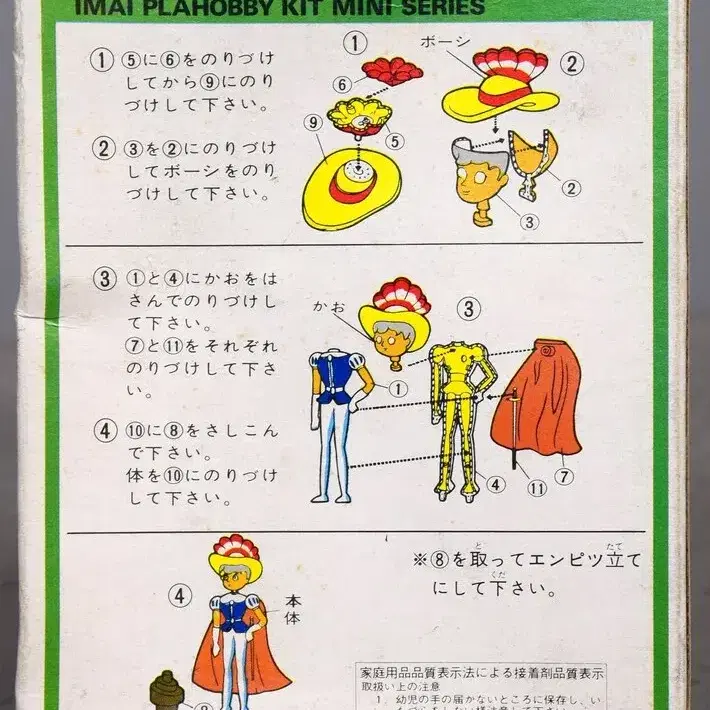 IMAI PLAHOBBY KIT MINI SERIES
① ⑤に⑥をのりづけ
してから⑨にのり
づけして下さい。
② ③を②にのりづけ
してボーシをのり
づけして下さい。
①
⑥
⑨
⑤
ボーシ
②
②
③
③ ①と④にかおをは
さんでのりづけし
て下さい。
⑦と⑪をそれぞれ
のりづけして下さ
い。
④ ⑩に⑧をさしこん
で下さい。
体を⑩にのりづけ
して下さい。
かお
③
①
④
⑪
⑦
④
本体
※⑧を取ってエンピツ立て
にして下さい。
と
たて
くだ
家庭用品品質表示法による接着剤品質表示
取扱い上の注意
1. 幼児の手の届かないところに保存し、い